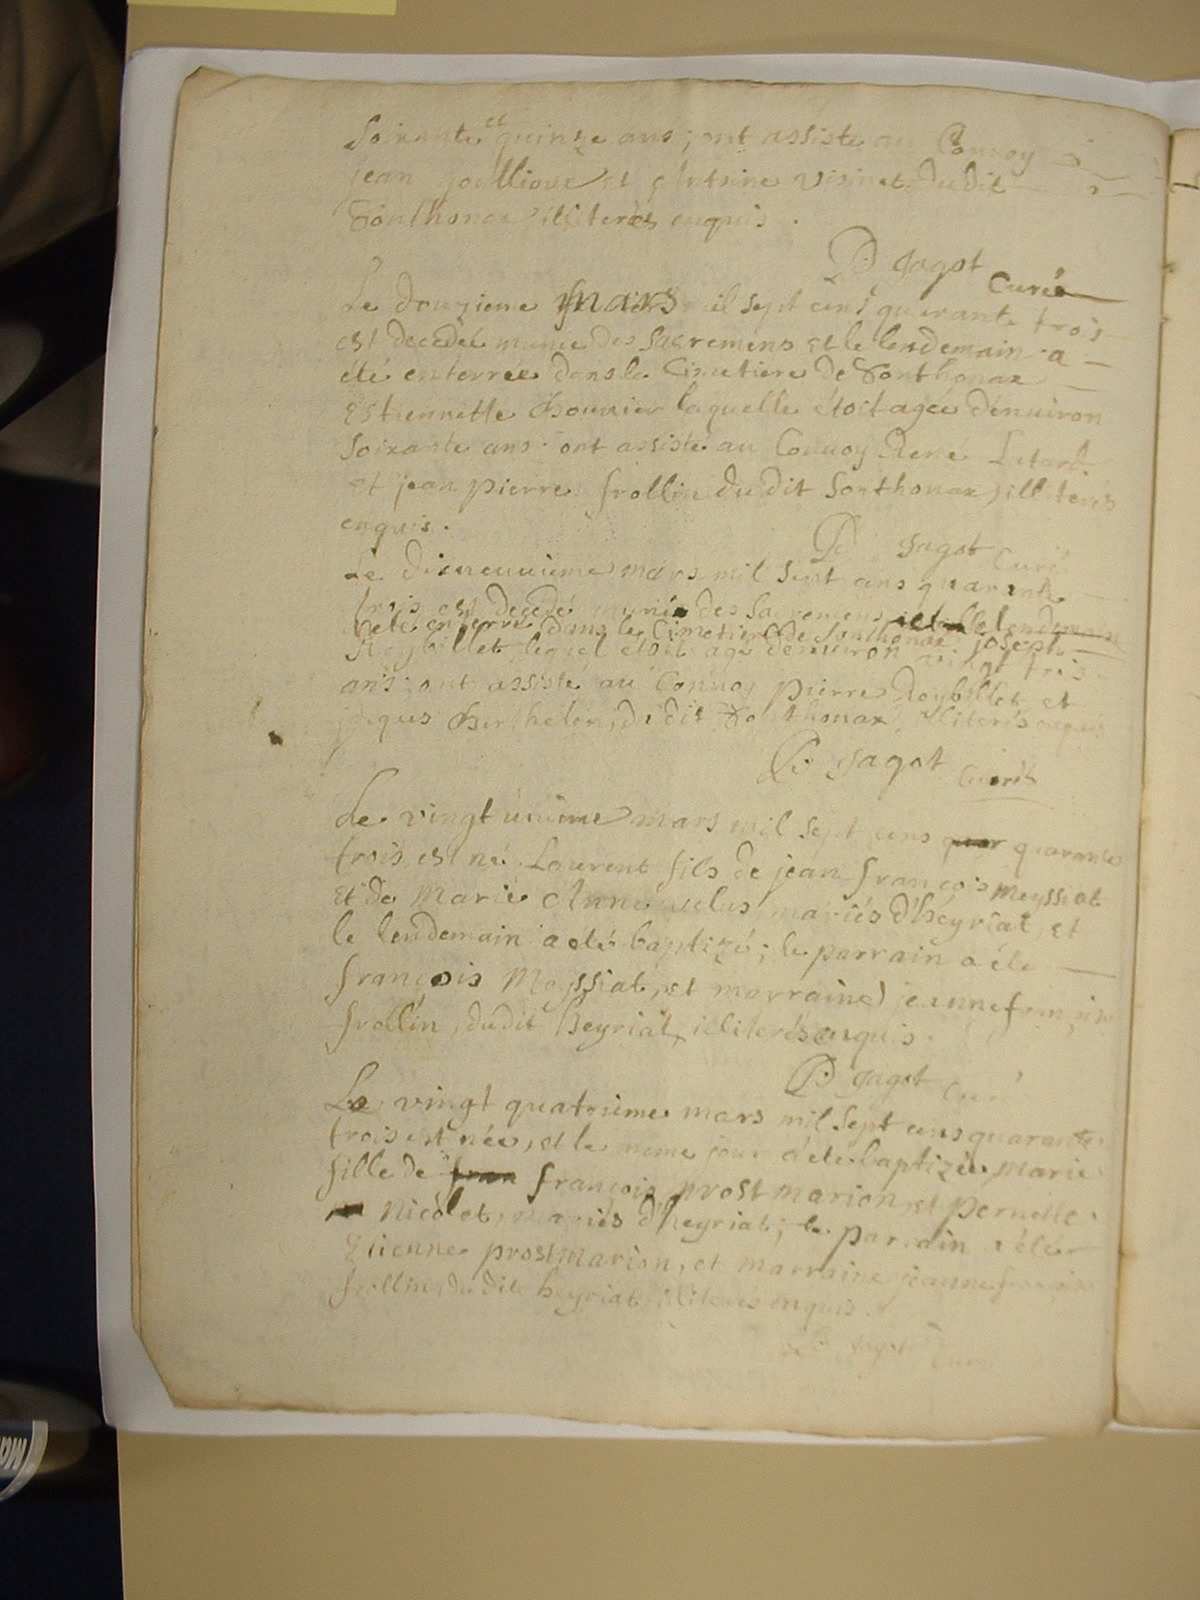 Soixante et quinze ans ; ont assisté au Convoy
jean et Antoine visinet dudit
Sonthonax illiterés enquis .
P. Jagot Curé
Le douzieme mars mil sept cens quarante trois
est decedée munie des Sacremens et le lendemain a
eté enterrée dans le Cimetiere de Sonthonax
Estiennette Bouvier laquelle étoit agée d'enuiron
soixante ans ont assisté au Convoy René
et jean pierre frollin du dit Sonthonax illiterés
enquis .
P. Jagot Curé
Le dixneuuieme mars mil sept cens quarante
trois est decedé munie des Sacremens et le lendemain
a eté enterré dans le Cimetiere de Sonthonax joseph
Roybillet lequel etoit agé d'enuiron vingt trois
ans ; ont assisté au Convoy pierre Roybillet et
jaques du dit Sonthonax illiterés enquis
P. Jagot Curé
Le vingt unieme mars mil sept cens quar quarante
trois est né Laurent fils de jean françois Meyssiat
et de Marie Anne mariés d'heyriat, et
le lendemain a eté baptizé ; le parrain a été
françois Meyssiat, et marraine jeanne françoise
frollin, dudit heyriat, illiterés enquis .
P. Jagot Curé
Le vingt quatrieme mars mil sept cens quarante
trois est née, et le meme jour a eté baptizée marie
fille de fran françois prost marion, et pernette
Nicolet, mariés d'heyriat ; le parrain a été
Etienne prostmarion, et marraine jeanne françoise
frollin, du dit heyriat illiterés enquis .
P. Jagot Curé